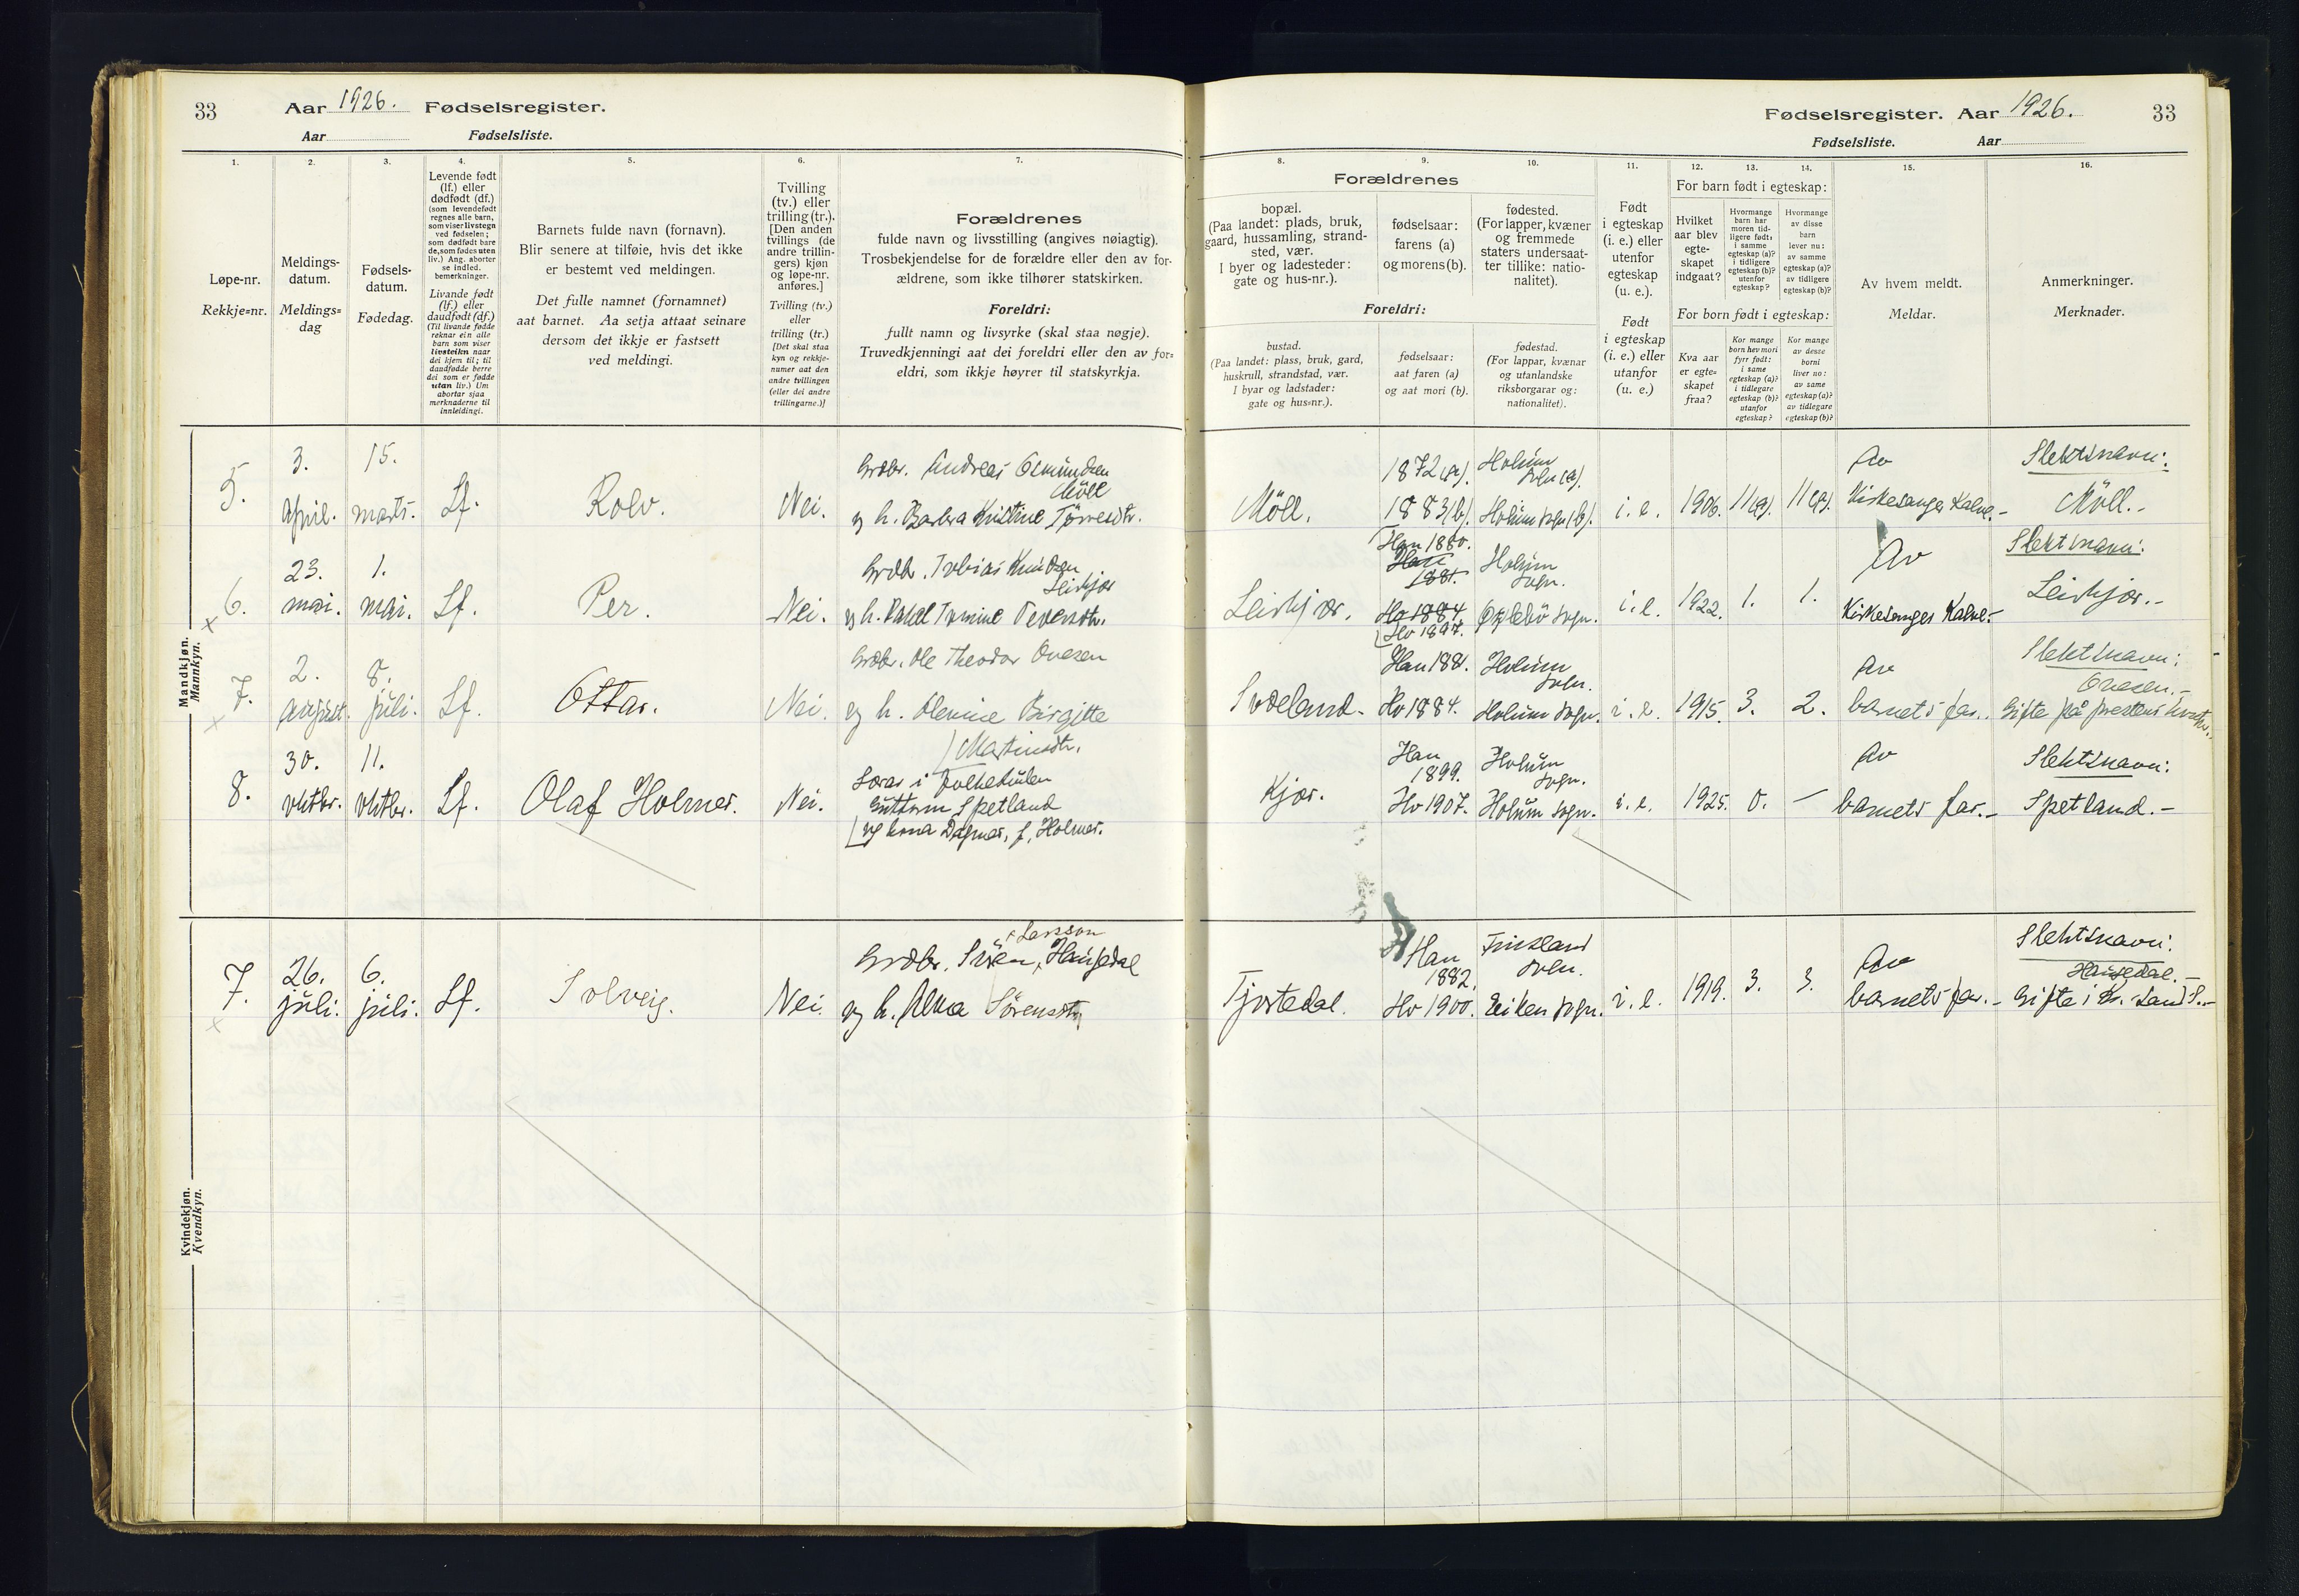 33 Aar 1926. Fødselsregister.
Aar Fødselsliste.
1. 2. 3. 4. 5. 6. 7.
Løpe-nr.
Rekkje=nr.
Meldings-
datum.
Meldings=
dag
Fødsels-
datum.
Fødedag.
Levende født
(lf.) eller
dødfødt (df.)
(som levendefødt
regnes alle barn,
som viser livstegn
ved fødselen;
som dødfødt bare
de, som fødes uten
liv.) Ang. aborter
se indled.
bemerkninger.
Livande født
(lf.) eller
daudfødt (df.)
(Til livande fødde
reknar ein alle
barn som viser
livsteikn naar
dei kjem til; til
daudfødde berre
dei som er fødde
utan liv.) Um
abortar sjaa
merknaderne til
innleidingi.
Barnets fulde navn (fornavn).
Blir senere at tilføie, hvis det ikke
er bestemt ved meldingen.
Det fulle namnet (fornamnet)
aat barnet. Aa setja attaat seinare
dersom det ikkje er fastsett
ved meldingi.
Tvilling
(tv.) eller
trilling (tr.).
[Den anden
tvillings (de
andre trillin-
gers) kjøn
og løpe-nr.
anføres.]
Tvilling (tv.)
eller
trilling (tr.)
[Det skal staa
kyn og rekkje-
numer aat den
andre tvillingen
(eller dei andre
trillingarne.)]
Forældrenes
fulde navn og livsstilling (angives nøiagtig).
Trosbekjendelse for de forældre eller den av for-
ældrene, som ikke tilhører statskirken.
Foreldri:
fullt namn og livsyrke (skal staa nøgje).
Truvedkjenningi aat dei foreldri eller den av for=
eldri, som ikkje høyrer til statskyrkja.
Mandkjøn.
Mannkyn.
5. 3. april. 15. marts. Lf. Rolv. Nei.
Grdbr. Andreas Osmundsen
Möll
og h. Barbra Kristine Törresdtr.
6. 23. mai. 1. mai. Lf. Per. Nei.
Grdbr. Tobias Knudsen
Leirkjær
og h. Rakel Tomine Pedersdtr.
7. 2. august. 8. juli. Lf. Ottar. Nei.
Grdbr. Ole Theodor Ovesen
og h. Olevine Birgitte
Martinsdtr.
8. 30. oktbr. 11. oktbr. Lf. Olaf Holmer. Nei.
Lærer i folkeskulen
Guttorm Spetland
og kona Dagmar, f. Holmer.
Kvindekjøn.
Kvendkyn.
7. 26. juli. 6. juli. Lf. Solveig. Nei.
x Larsson
Grdbr. Sven x Haugedal
og h. Alva Sörensdtr.
Fødselsregister. Aar 1926. 33
Fødselsliste. Aar
8. 9. 10. 11. 12. 13. 14. 15. 16.
Forældrenes
bopæl.
(Paa landet: plads, bruk,
gaard, hussamling, strand-
sted, vær.
I byer og ladesteder:
gate og hus-nr.).
fødselsaar:
farens (a)
og morens (b).
fødested.
(For lapper, kvæner
og fremmede
staters undersaat-
ter tillike: natio-
nalitet).
Foreldri:
bustad.
(Paa landet: plass, bruk, gard,
huskrull, strandstad, vær.
I byar og ladstader:
gate og hus=nr.).
fødselsaar:
aat faren (a)
og aat mori (b).
fødestad.
(For lappar, kvænar
og utanlandske
riksborgarar og:
nationalitet).
Født
i egteskap
(i. e.) eller
utenfor
egteskap
(u. e.).
Født
i egteskap
(i. e.) eller
utanfor
(u. e.)
For barn født i egteskap:
Hvilket
aar blev
egte-
skapet
indgaat?
Hvormange
barn har
moren tid-
ligere født:
i samme
egteskap (a)?
i tidligere
egteskap (b)?
utenfor
egteskap?
Hvormange
av disse
barn
lever nu:
av samme
egteskap (a)?
av tidligere
egteskap (b)?
For born født i egteskap:
Kva aar
er egte=
skapet
fraa?
Kor mange
born hev mori
fyrr født:
i same
egteskap (a)?
i tidlegare
egteskap (b)?
utanfor
egteskap?
Kor mange
av desse
borni
liver no:
av same
egteskap (a)?
av tidlegare
egteskap (b)?
Av hvem meldt.
Meldar.
Anmerkninger.
Merknader.
Möll. 1872 (a). Holum sogn (a). 1883 (b). Holum sogn (b). i. e. 1906. 11 (a). 11 (a). Av Kirkesanger Kalve.- Slektsnavn: Möll.-
Leirkjær. Han 1880. Han 1881. Holum sogn. Ho 1884 Ho 1897. Øyslebö sogn. i. e. 1922. 1. 1. Av Kirkesanger Kalve.- Slektsnavn: Leirkjær.-
Svæland. Han 1881. Holum sogn. Ho 1884. Holum sogn. i. e. 1915. 3. 2. Av barnets far.. Slektsnavn: Ovesen.- Gifte på prestens kontor.
Kjær. Han 1899. Holum sogn. Ho 1907. Holum sogn. i. e. 1925. 0. – Av barnets far.- Slektsnavn: Spetland.-
Tjostedal. Han 1882. Finsland sogn. Ho 1900. Eiken sogn. i. e. 1919. 3. 3. Av barnets far.- Slektsnavn: Haugedal.- Gifte i Kr. sand S.-